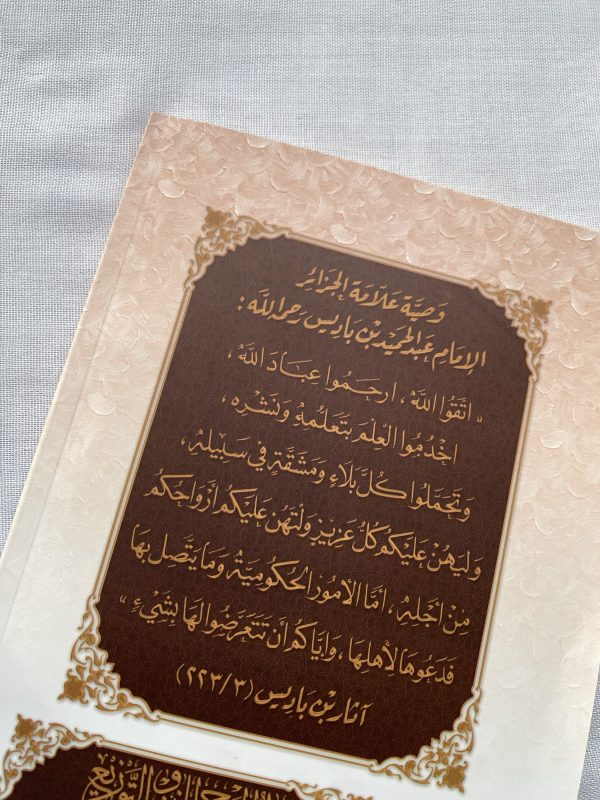 وَصِيَّة عَلَّامَة الجَزَائِر
الإمَامِ عَبْدِ الحَمِيْدِ بْنِ بَادِيس رَحِمَهُ اللَّه :
« اتَّقُوا اللَّهَ ، ارحَمُوا عِبَادَ اللَّهِ ،
اخْدُمُوا العِلْمَ بِتَعَلُّمِهِ وَنَشْرِهِ ،
وَتَحَمَّلُوا كُلَّ بَلَاءٍ وَمَشَقَّةٍ فِي سَبِيلِهِ ،
وَليَهُنْ عَلَيْكُم كُلُّ عَزِيزٍ وَلْتَهُن عَلَيْكُم أَرْوَاحُكُم
مِنْ أَجْلِهِ ، أمَّا الأمُورُ الحُكُومِيَّةُ وَمَا يَتَّصِل بِهَا
فَدَعُوهَا لِأَهْلِهَا ، وَإيَّاكُم أَن تَتَعَرَّضُوا لَهَا بِشَيْءٍ »
آثار بْن بَادِيس (٢٢٣/٣)
والتَّوْزِيع